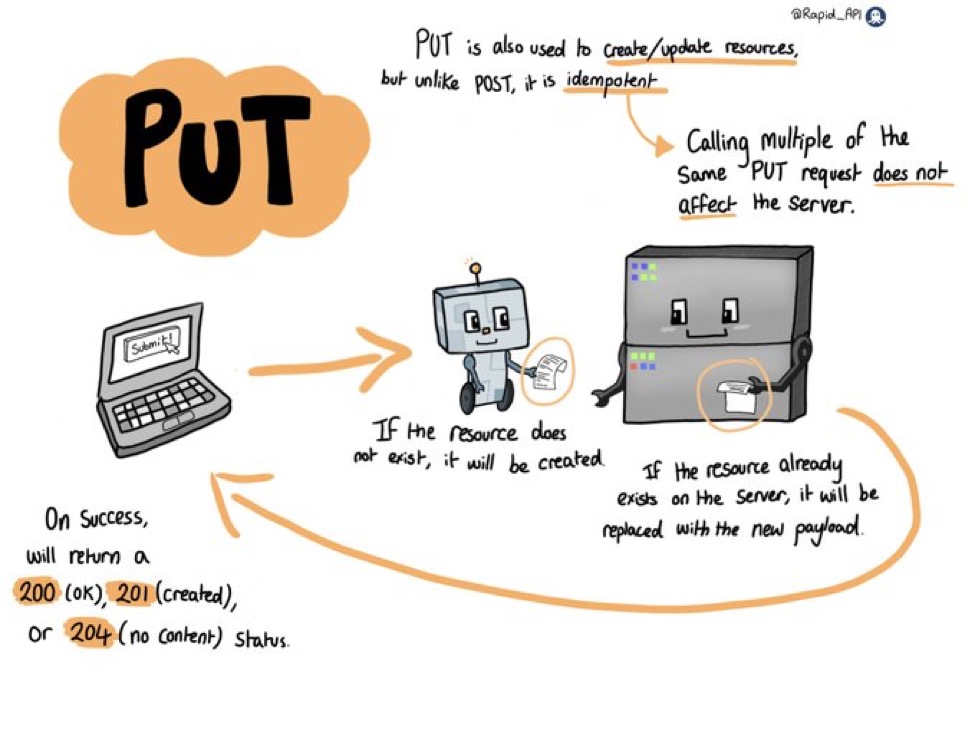 @Rapid_API
PUT
PUT is also used to create/update resources,
but unlike POST, it is idempotent
Calling multiple of the
same PUT request does not
affect the server.
Submit!
If the resource does
not exist, it will be created.
If the resource already
exists on the server, it will be
replaced with the new payload.
On success,
will return a
200 (OK), 201 (created),
or 204 (no content) status.